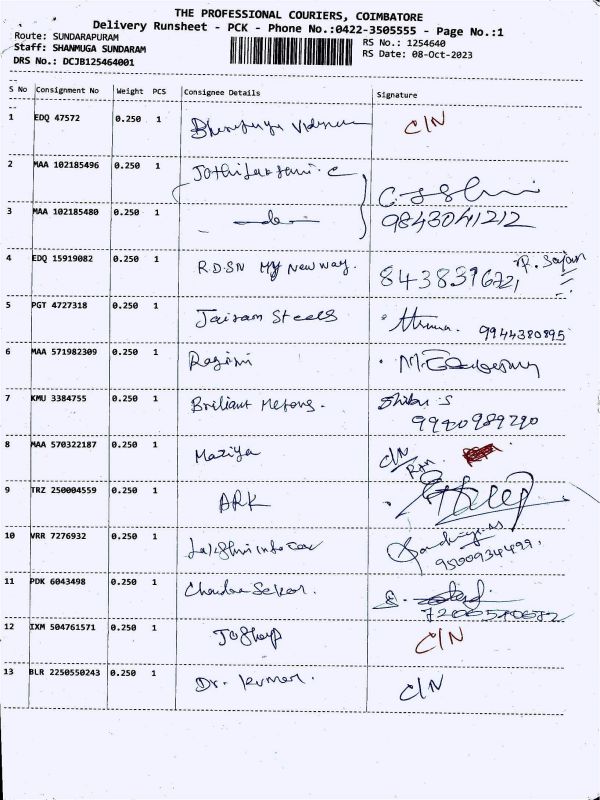 THE PROFESSIONAL COURIERS, COIMBATORE
Delivery Runsheet - PCK - Phone No.:0422-3505555 - Page No.:1
Route: SUNDARAPURAM
RS No.: 1254640
Staff: SHANMUGA SUNDARAM
RS Date: 08-Oct-2023
DRS No.: DCJB125464001
S No Consignment No Weight PCS Consignee Details Signature
1 EDQ 47572 0.250 1 C/N
2 MAA 102185496 0.250 1
3 MAA 102185480 0.250 1 9843041212
4 EDQ 15919082 0.250 1 R.D.SN My New way. 8438396721
5 PGT 4727318 0.250 1 Jairam Steels 9944380895
6 MAA 571982309 0.250 1 Ragini
7 KMU 3384755 0.250 1 Briliant Shibu S
8 MAA 570322187 0.250 1 Maziya C/N
9 TRZ 250004559 0.250 1 ARK
10 VRR 7276932 0.250 1 9500934499
11 PDK 6043498 0.250 1 Chandra Sekar.
12 IXM 504761571 0.250 1 C/N
13 BLR 2250550243 0.250 1 Dr. Kumar. C/N